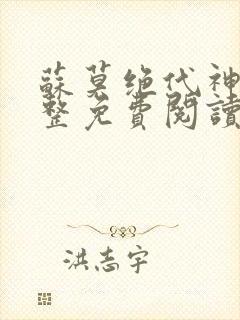 蘇莫绝代神
整免費閱讀
洪志宇